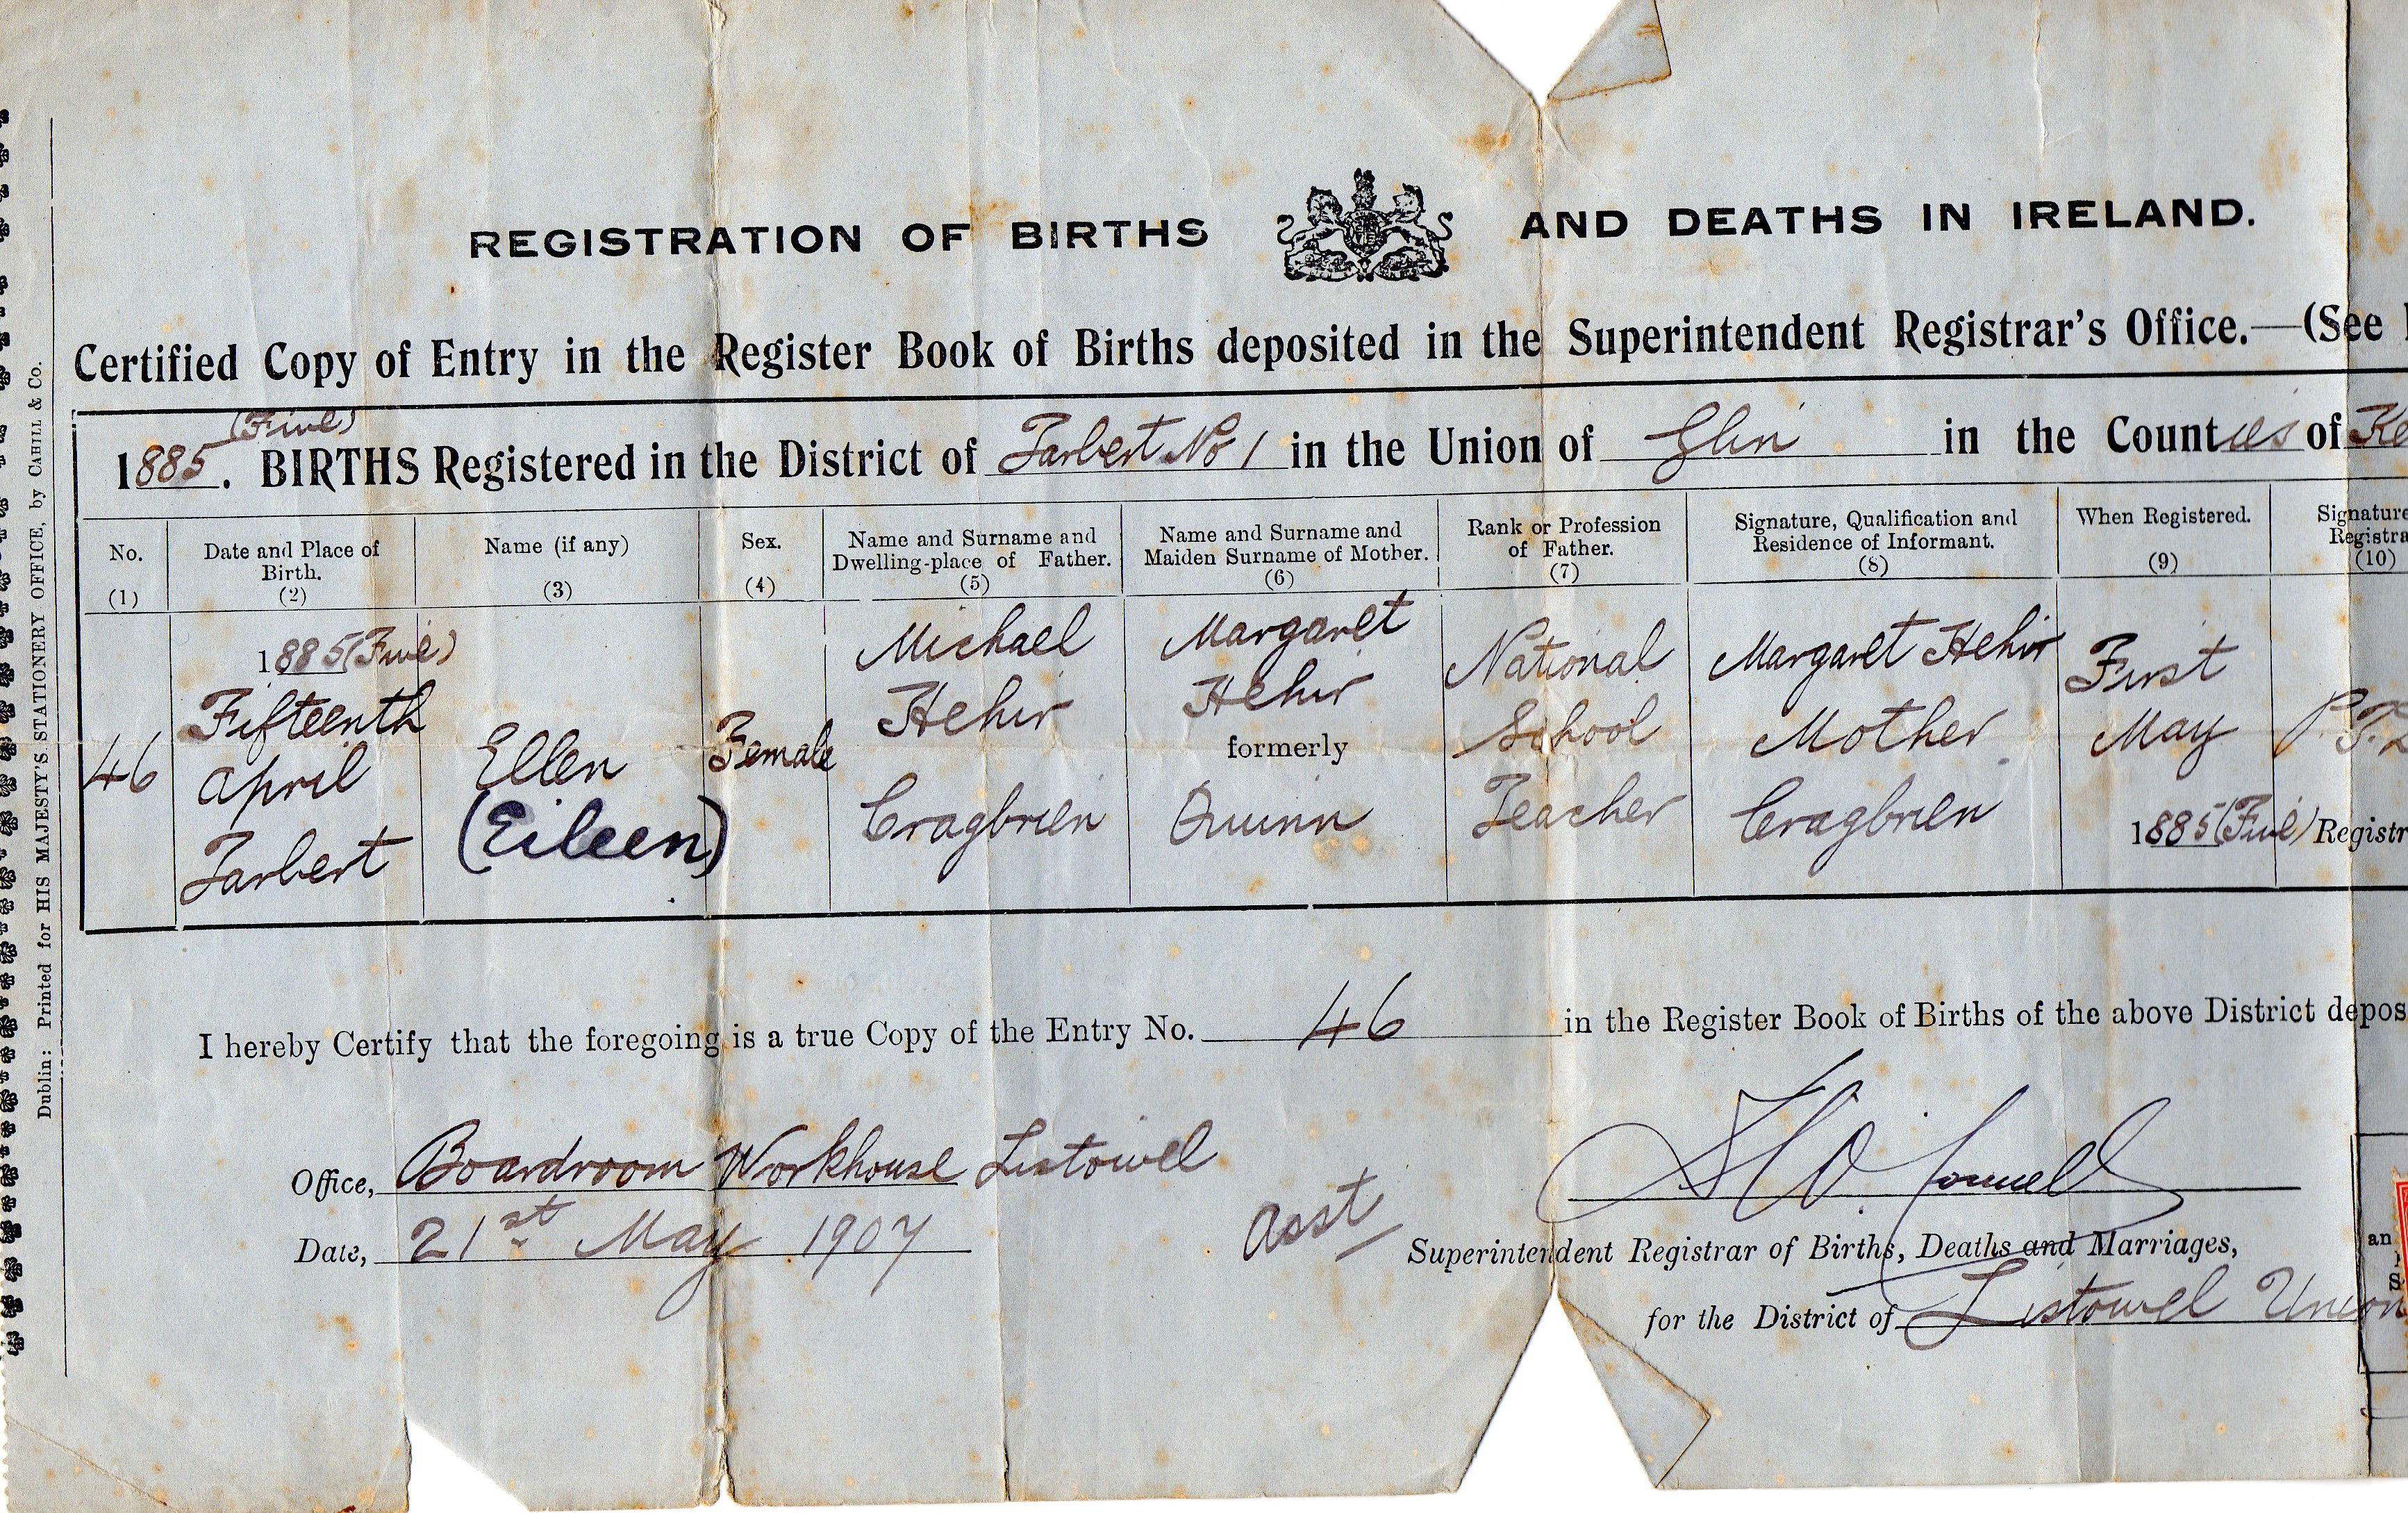 REGISTRATION OF BIRTHS AND DEATHS IN IRELAND.
Certified Copy of Entry in the Register Book of Births deposited in the Superintendent Registrar's Office.—(See
(Five)
1885. BIRTHS Registered in the District of Tarbert No 1 in the Union of Glin in the Counties of Ke
No. (1)
Date and Place of Birth. (2)
Name (if any) (3)
Sex. (4)
Name and Surname and Dwelling-place of Father. (5)
Name and Surname and Maiden Surname of Mother. (6)
Rank or Profession of Father. (7)
Signature, Qualification and Residence of Informant. (8)
When Registered. (9)
Signature Registra (10)
46
1885 (Five)
Fifteenth
April
Tarbert
Ellen
(Eileen)
Female
Michael
Hehir
Cragbrien
Margaret
Hehir
formerly
Quinn
National
School
Teacher
Margaret Hehir
Mother
Cragbrien
First
May
1885 (Five)
P. T.
Registr
I hereby Certify that the foregoing is a true Copy of the Entry No. 46 in the Register Book of Births of the above District depos
Office, Boardroom Workhouse Listowel
Date, 21st May 1907
O'Connell
Asst Superintendent Registrar of Births, Deaths and Marriages,
for the District of Listowel Union
an
S
Dublin: Printed for HIS MAJESTY'S STATIONERY OFFICE, by CAHILL & Co.